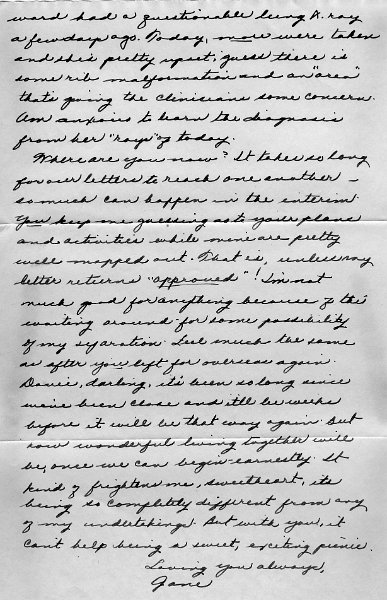 ward had a questionable lung X-ray
a few days ago. Today, more were taken
and she's pretty upset, guess there is
some rib malformation and an "area"
that's giving the clinicians some concern.
Am anxious to learn the diagnosis
from her "rays" of today.
Where are you now? It takes so long
for our letters to reach one another -
so much can happen in the interim.
You keep me guessing as to your plans
and activities while mine are pretty
well mapped out. That is, unless my
letter returns "approved"! I'm not
much good for anything because of the
waiting around for some possibility
of my separation. Feel much the same
as after you left for overseas again.
darling, it's been so long since
we've been close and it'll be weeks
before it will be that way again. But
how wonderful living together will
be, once we can begin - earnestly. It
kind of frightens me, sweetheart, its
being so completely different from any
of my undertakings. But with you, it
can't help being a sweet, exciting picnic.
Loving you always,
Jane